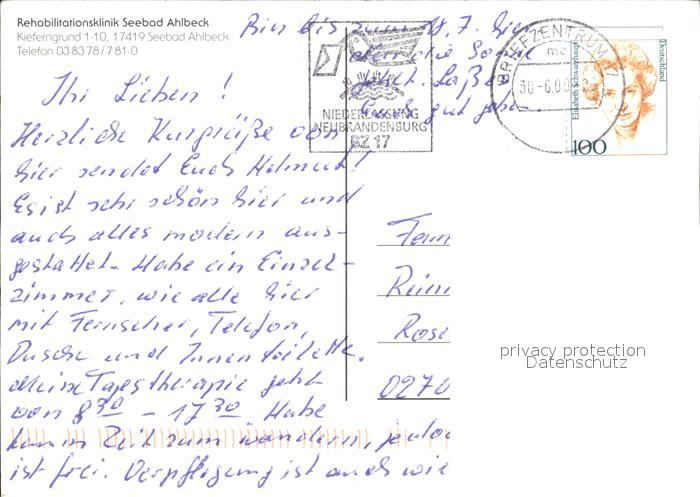 Rehabilitationsklinik Seebad Ahlbeck
Kieferngrund 1-10, 17419 Seebad Ahlbeck
Telefon 03 83 78 / 7 81-0
Bin bis zum 18.7. hier
die Sonne
Laßt
Euch gut gehen.
Ihr Lieben!
Herzliche Kurgrüße von
hier sendet Euch Helmut!
Es ist sehr schön hier und
auch alles modern aus-
gestattet. Habe ein Einzel-
zimmer, wie alle hier
mit Fernseher, Telefon,
Dusche und Innentoilette.
Meine Tagestherapie geht
von 8 30 - 17 30 Habe
kaum Zeit zum wandern, jedoc
ist frei. Verpflegung ist auch wie
NIEDERLASSUNG
NEUBRANDENBURG
BZ 17
BRIEFZENTRUM 17
mc
30-6.00
Deutschland
Elisabeth Schwarzhaupt
100
Fam
Reim
Rose
0270
privacy protection
Datenschutz